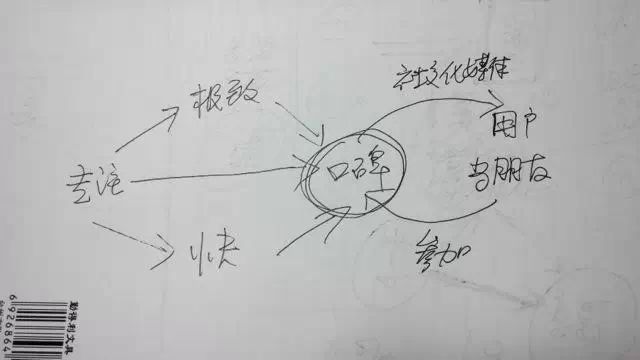 社交化媒体
极致
用户
专注
口碑
当朋友
快
参加
勤得利文具
6926864